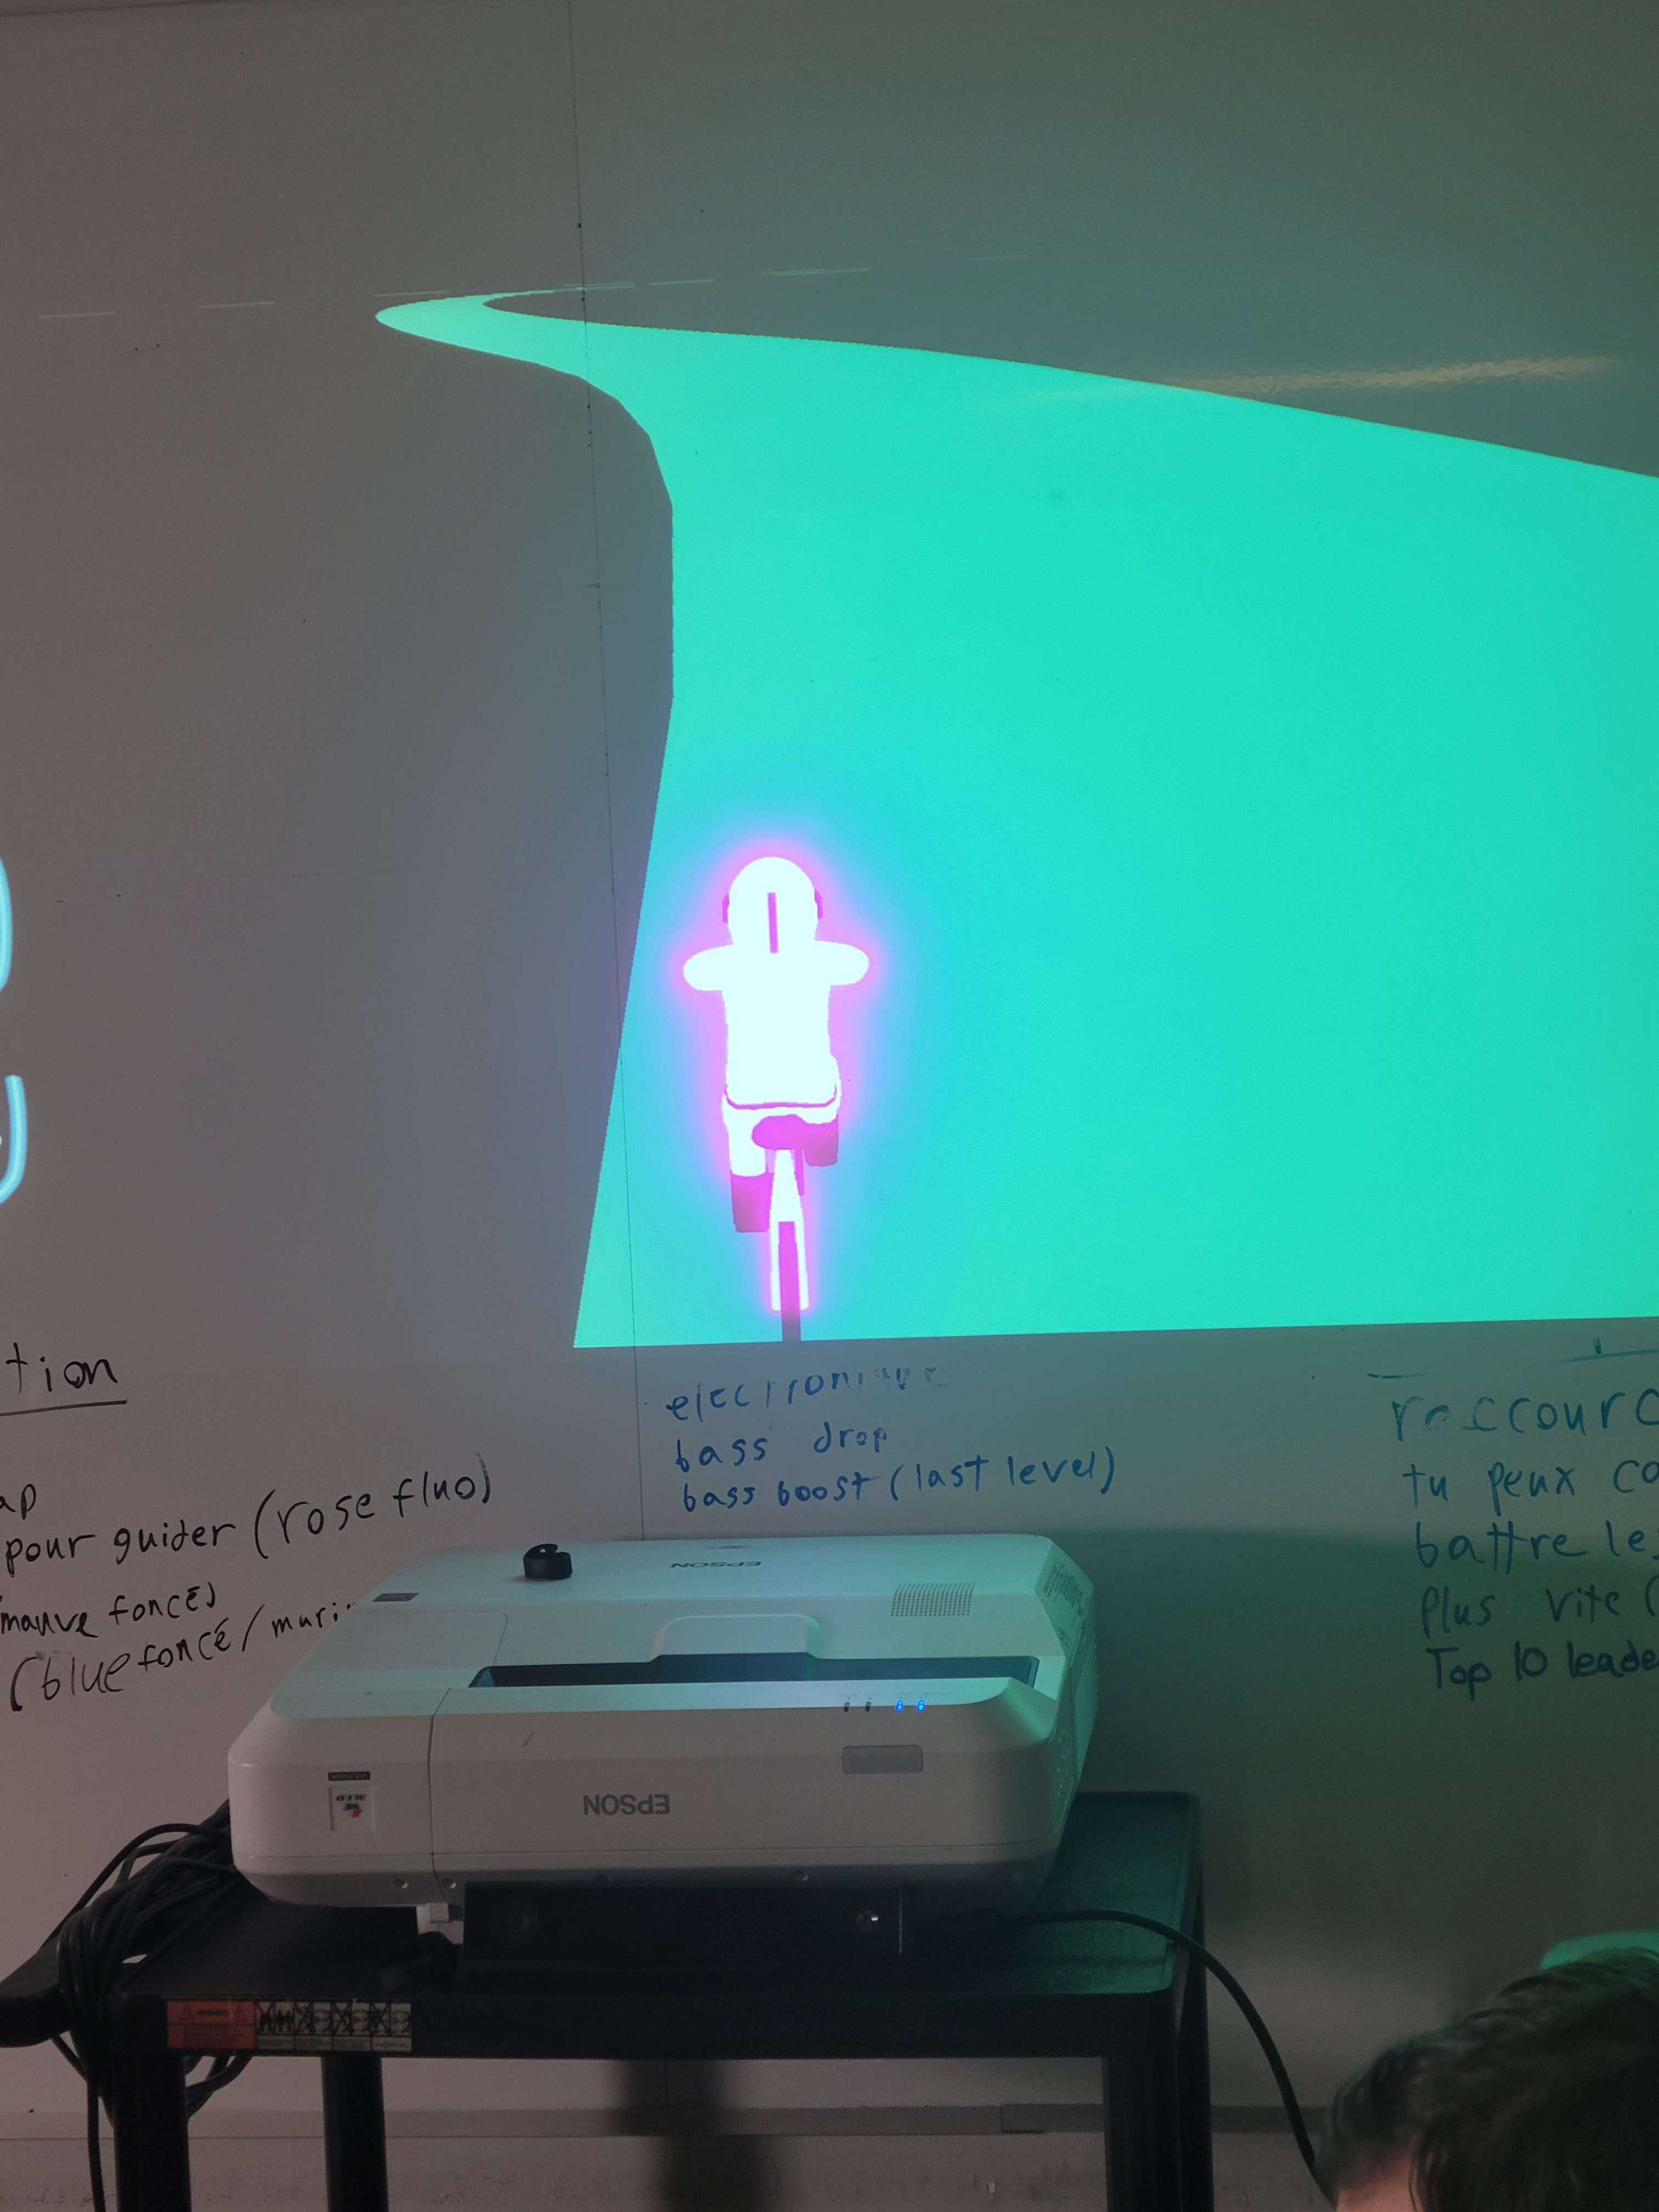 tion
ap
pour guider (rose fluo)
mauve foncé)
(blue foncé/
electronique
bass drop
bass boost (last level)
raccourc
tu peux co
battre le
Plus vite (
Top 10 leade
EPSON
EPSON
3LCD